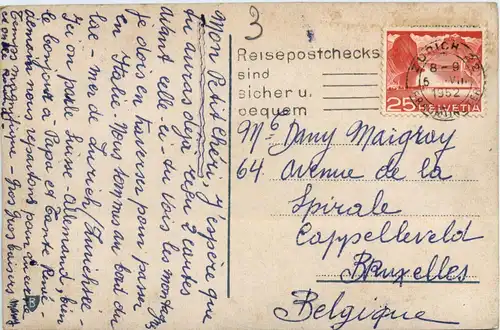 3
Mon Petit Chéri, j'espère que
tu auras déjà reçu 2 cartes
dont celle ci - tu vois les montagnes
je dois en traverser pour passer
en Italie. Nous sommes au bord du
- mer de Zurich/Zurichsée -
Ici on parle Suisse-Allemand, bien
le bonjour à Papa et Tante René -
nous repartons
temps magnifique - Gros baisers
Reisepostchecks
sind
sicher u.
bequem
ZÜRICH 22
8-9
15. VII.
1952
25 HELVETIA
Mr Dany Maigray
64. Avenue de la
Spirale
Cappelleveld
Bruxelles
Belgique